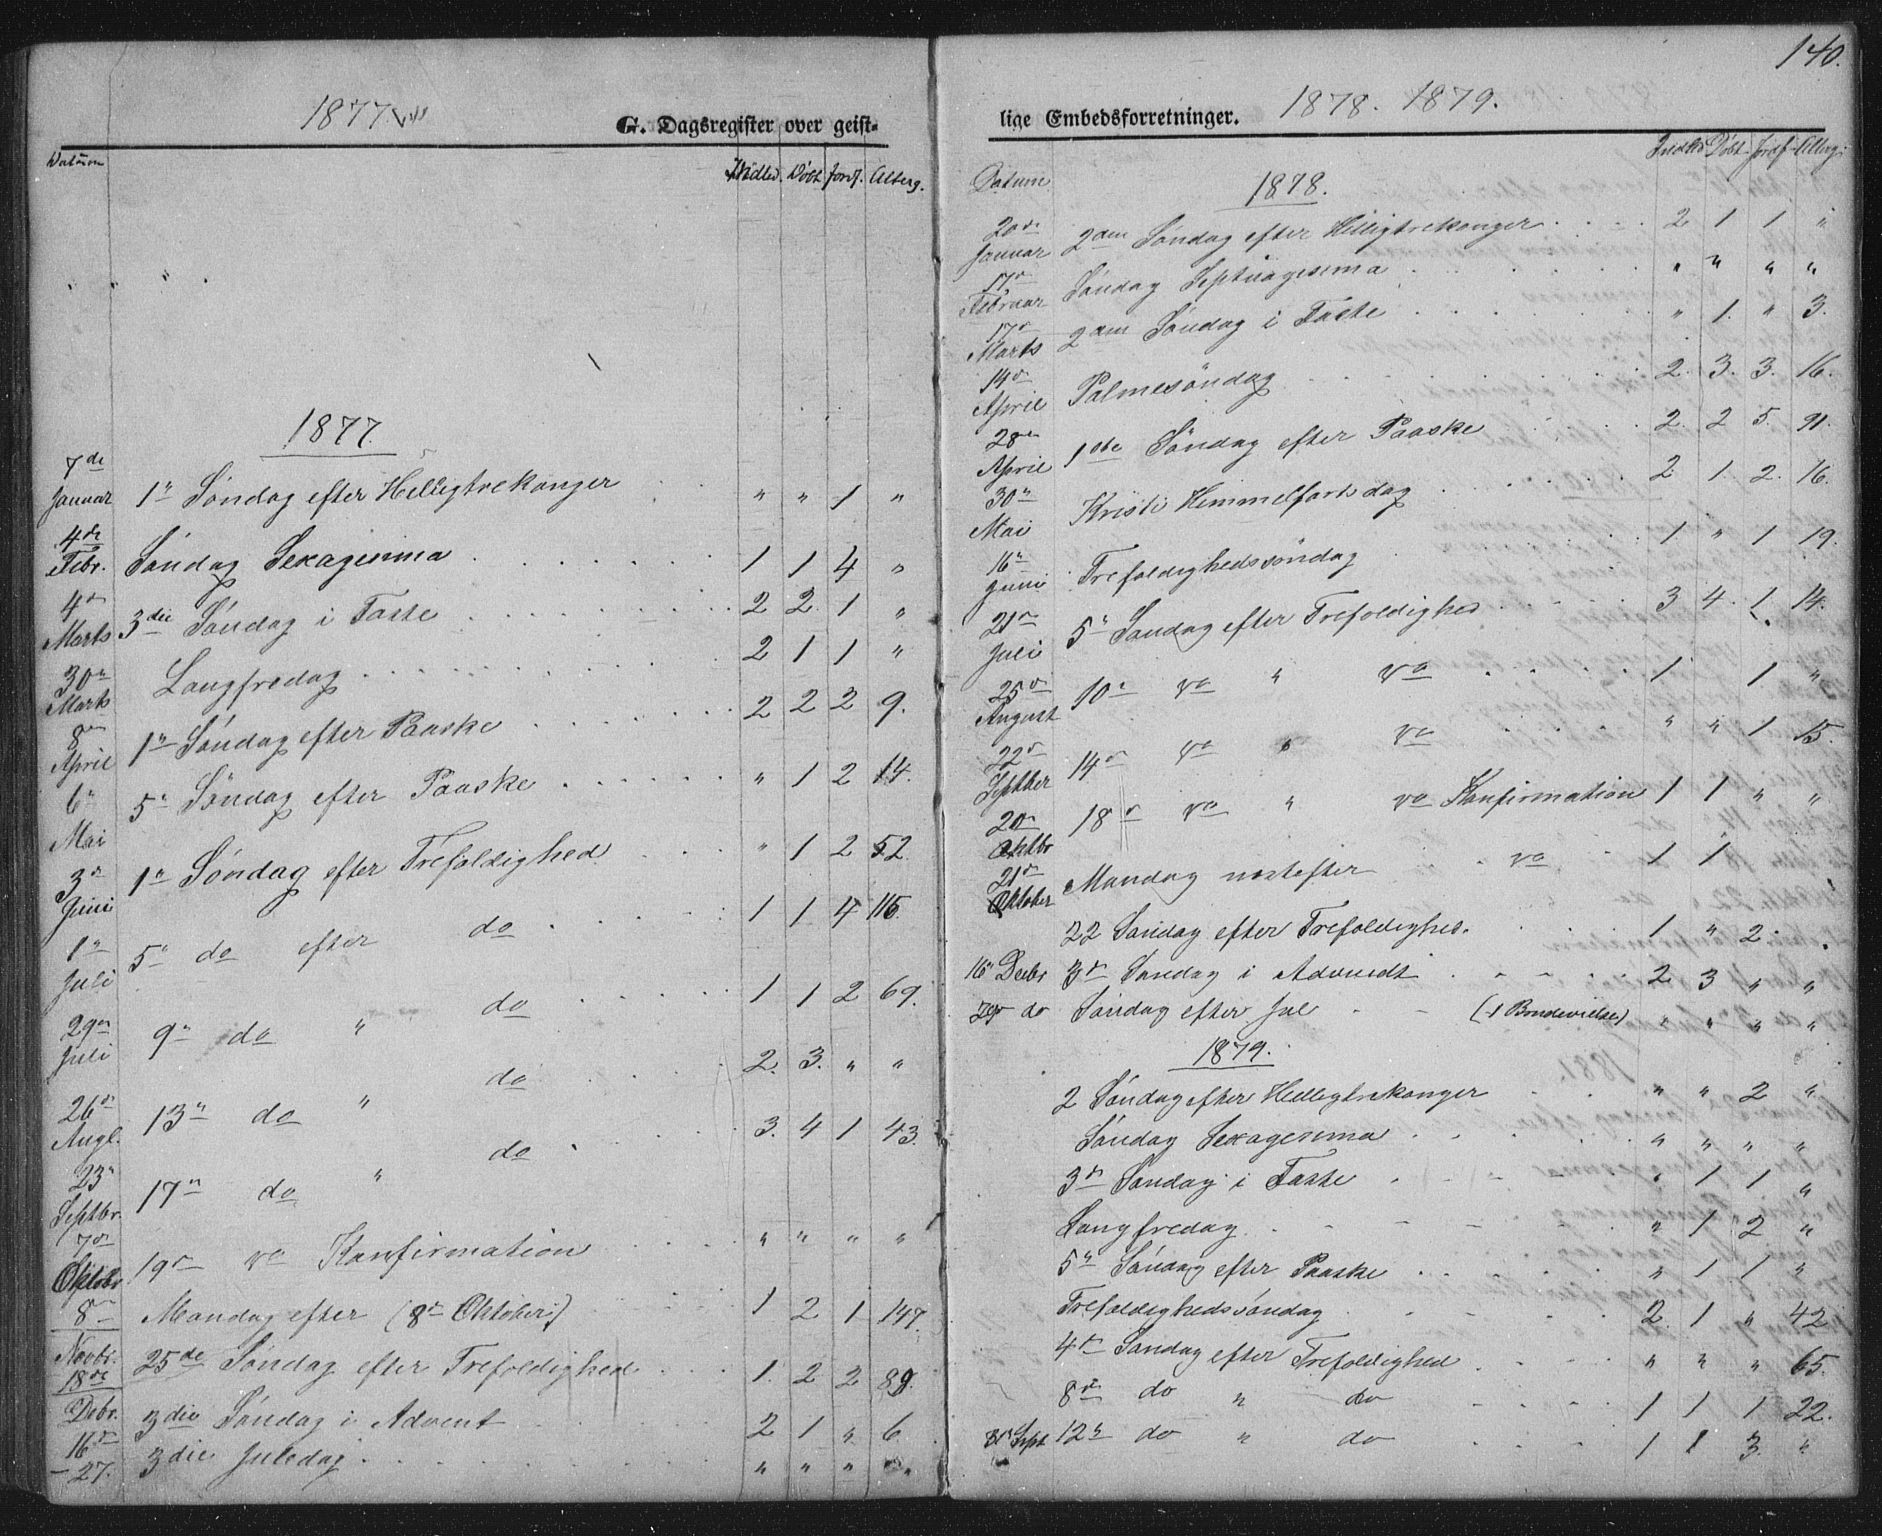 1877
G. Dagsregister over geist-
Datum Indled. Døbt Jordf. Alterg.
1877.
7de Januar 1ste Søndag efter Helligtrekonger " " 1 "
4de Febr. Søndag Sexagesima 1 1 4 "
4de Marts 3die Søndag i Faste 2 2 1 "
30te Marts Langfredag 2 1 1 "
8de April 1ste Søndag efter Paaske 2 2 2 9.
6te Mai 5te Søndag efter Paaske " 1 2 14.
3die Juni 1ste Søndag efter Trefoldighed " 1 2 52.
1ste Juli 5te do efter do 1 1 4 115.
29de Juli 9de do " do 1 1 2 69.
26de Augt. 13de do " do 2. 3. " "
23de Septbr. 17de do " do 3. 4 1 43.
7de Oktobr 19de do Konfirmation " " " "
8de Mandag efter (8de Oktober) 1 2 1 147.
Novbr. 18de 25de Søndag efter Trefoldighed 1. 2 2 89.
Debr. 16de 3die Søndag i Advent 2 1 " 6.
- 27. 3die Juledag " " " "
140.
lige Embedsforretninger. 1878. 1879.
Datum Indled Døbt Jordf. Alterg.
1878.
20de Januar 2den Søndag efter Helligtrekonger 2 1 1 "
17de Februar Søndag Septuagesima " " " "
17de Marts 2den Søndag i Faste " 1. " 3.
14de April Palmesøndag 2. 3. 3. 16.
28de April 1ste Søndag efter Paaske 2. 2 5. 91.
30te Mai Kristi Himmelfartsdag 2. 1. 2. 16.
16de Juni Trefoldighedssøndag 1 " 1 19.
21de Juli 5te Søndag efter Trefoldighed 3 4. 1. 14.
25de August 10de do " do 1 1 "
22de Septber 14de do " do " " 1 15.
20de Oktbr 18de do " do Konfirmation 1 1 " "
21de Oktober Mandag næstefter do 1 1
22 Søndag efter Trefoldighed. 1 " 2.
16de Decbr 3de Søndag i Advendt 2 3 " "
29de do Søndag efter Jul (1 Brudevielse) " " " "
1879.
2 Søndag efter Helligtrekonger " " 2 "
Søndag Sexagesima " " " "
3de Søndag i Faste " 1 1 "
Langfredag " 1 2 "
5te Søndag efter Paaske " 1 1 "
Trefoldighedssøndag 2. 1 " 42
4de Søndag efter Trefoldighed " " " 65.
8de do " do 1 1 1 22.
31 Sept 12te do " do 1 1 3. "